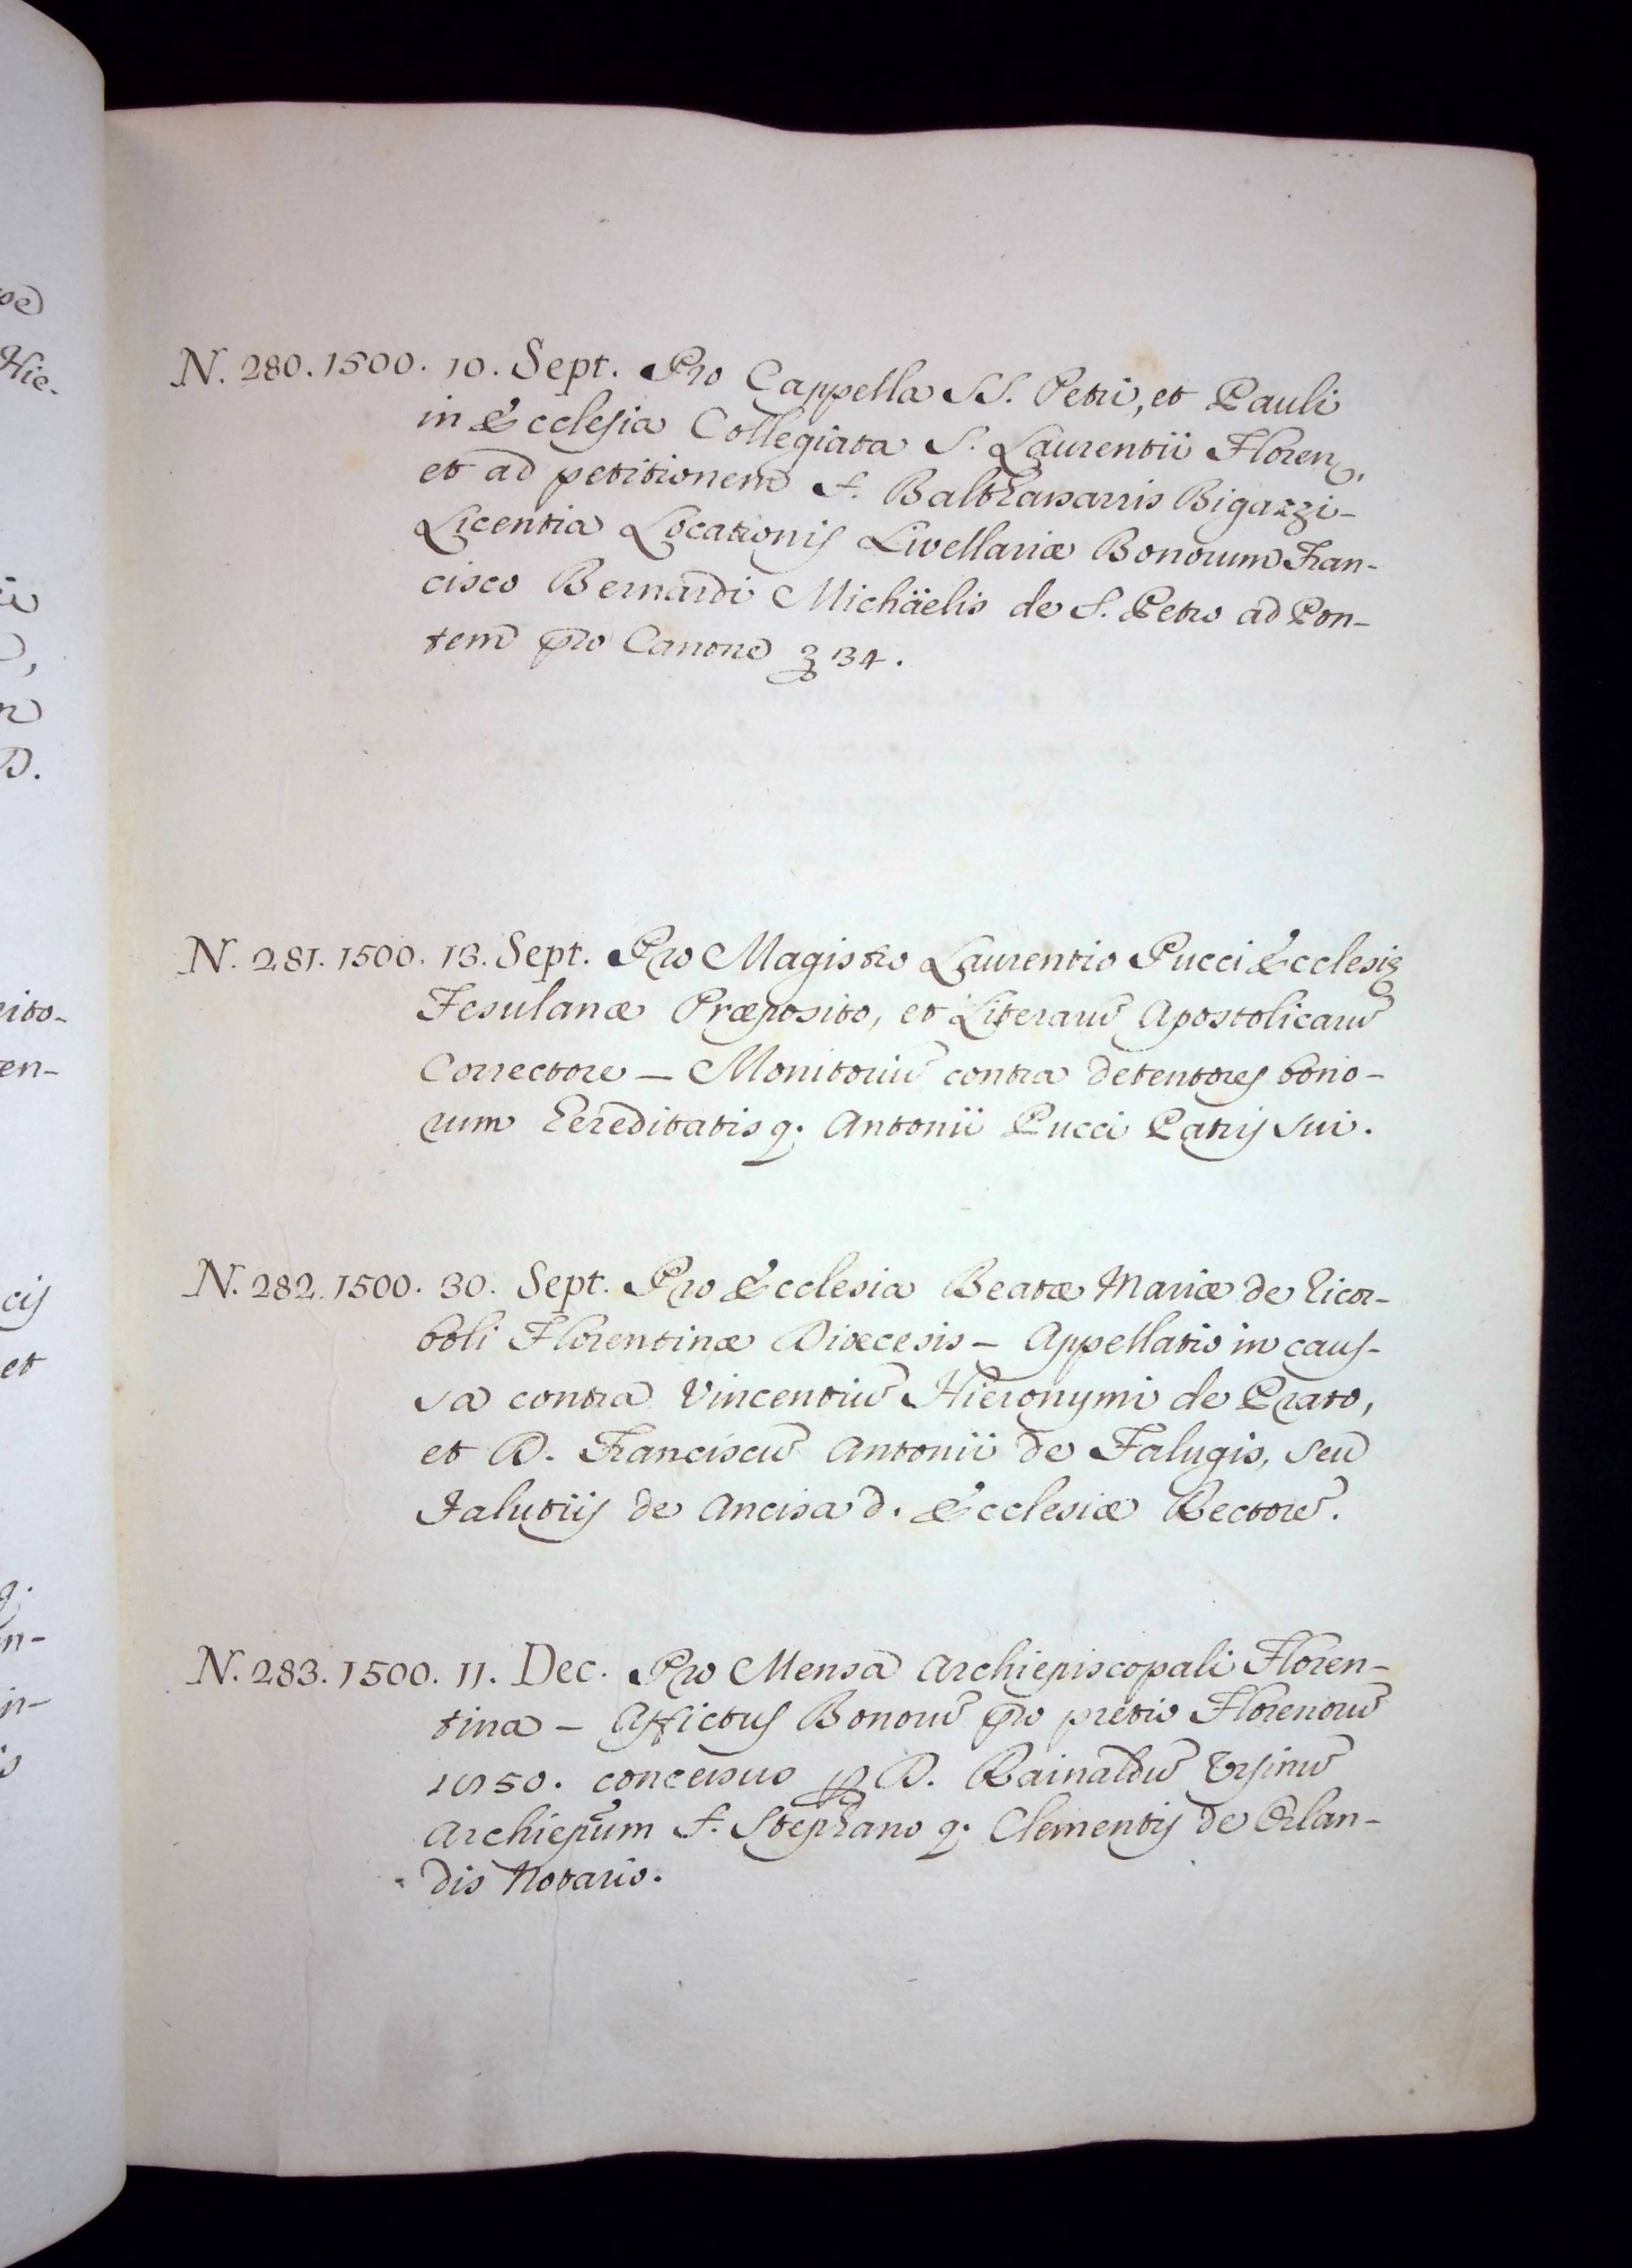 N. 280. 1500. 10. Sept. Pro Cappella SS. Petri, et Pauli
in Ecclesia Collegiata S. Laurentii Floren.
et ad petitionem S. Balthassarris Bigazzi -
Licentia Locationis Livellariæ Bonorum Fran-
cisco Bernardi Michäelis de S. Petro ad Pon-
tem pro Canone 34.
N. 281. 1500. 13. Sept. Pro Magistro Laurentio Pucci Ecclesię
Fesulanæ Præposito, et Literarũ Apostolicarũ
Correctore - Monitoriũ contra detentores bono-
rum hereditatis q. Antonii Pucci Patris sui.
N. 282. 1500. 30. Sept. Pro Ecclesia Beatæ Mariæ de Ricor-
boli Florentinæ Diœcesis - Appellatio in caus-
sa contra Vincentiũ Hieronymi de Prato,
et D. Franciscũ Antonii de Falugis, seu
Falutiis de Ancisa d. Ecclesiæ Rectorẽ.
N. 283. 1500. 11. Dec. Pro Mensa Archiepiscopali Floren-
tina - Affictus Bonorũ pro pretio Florenorũ
concessus p D. Rainaldũ Ursinũ
Archiepũm S. Stephano q. Clementis de Orlan-
dis Notario.
pe
Hie-
D.
rito-
en-
cis
et
q.
n-
in-